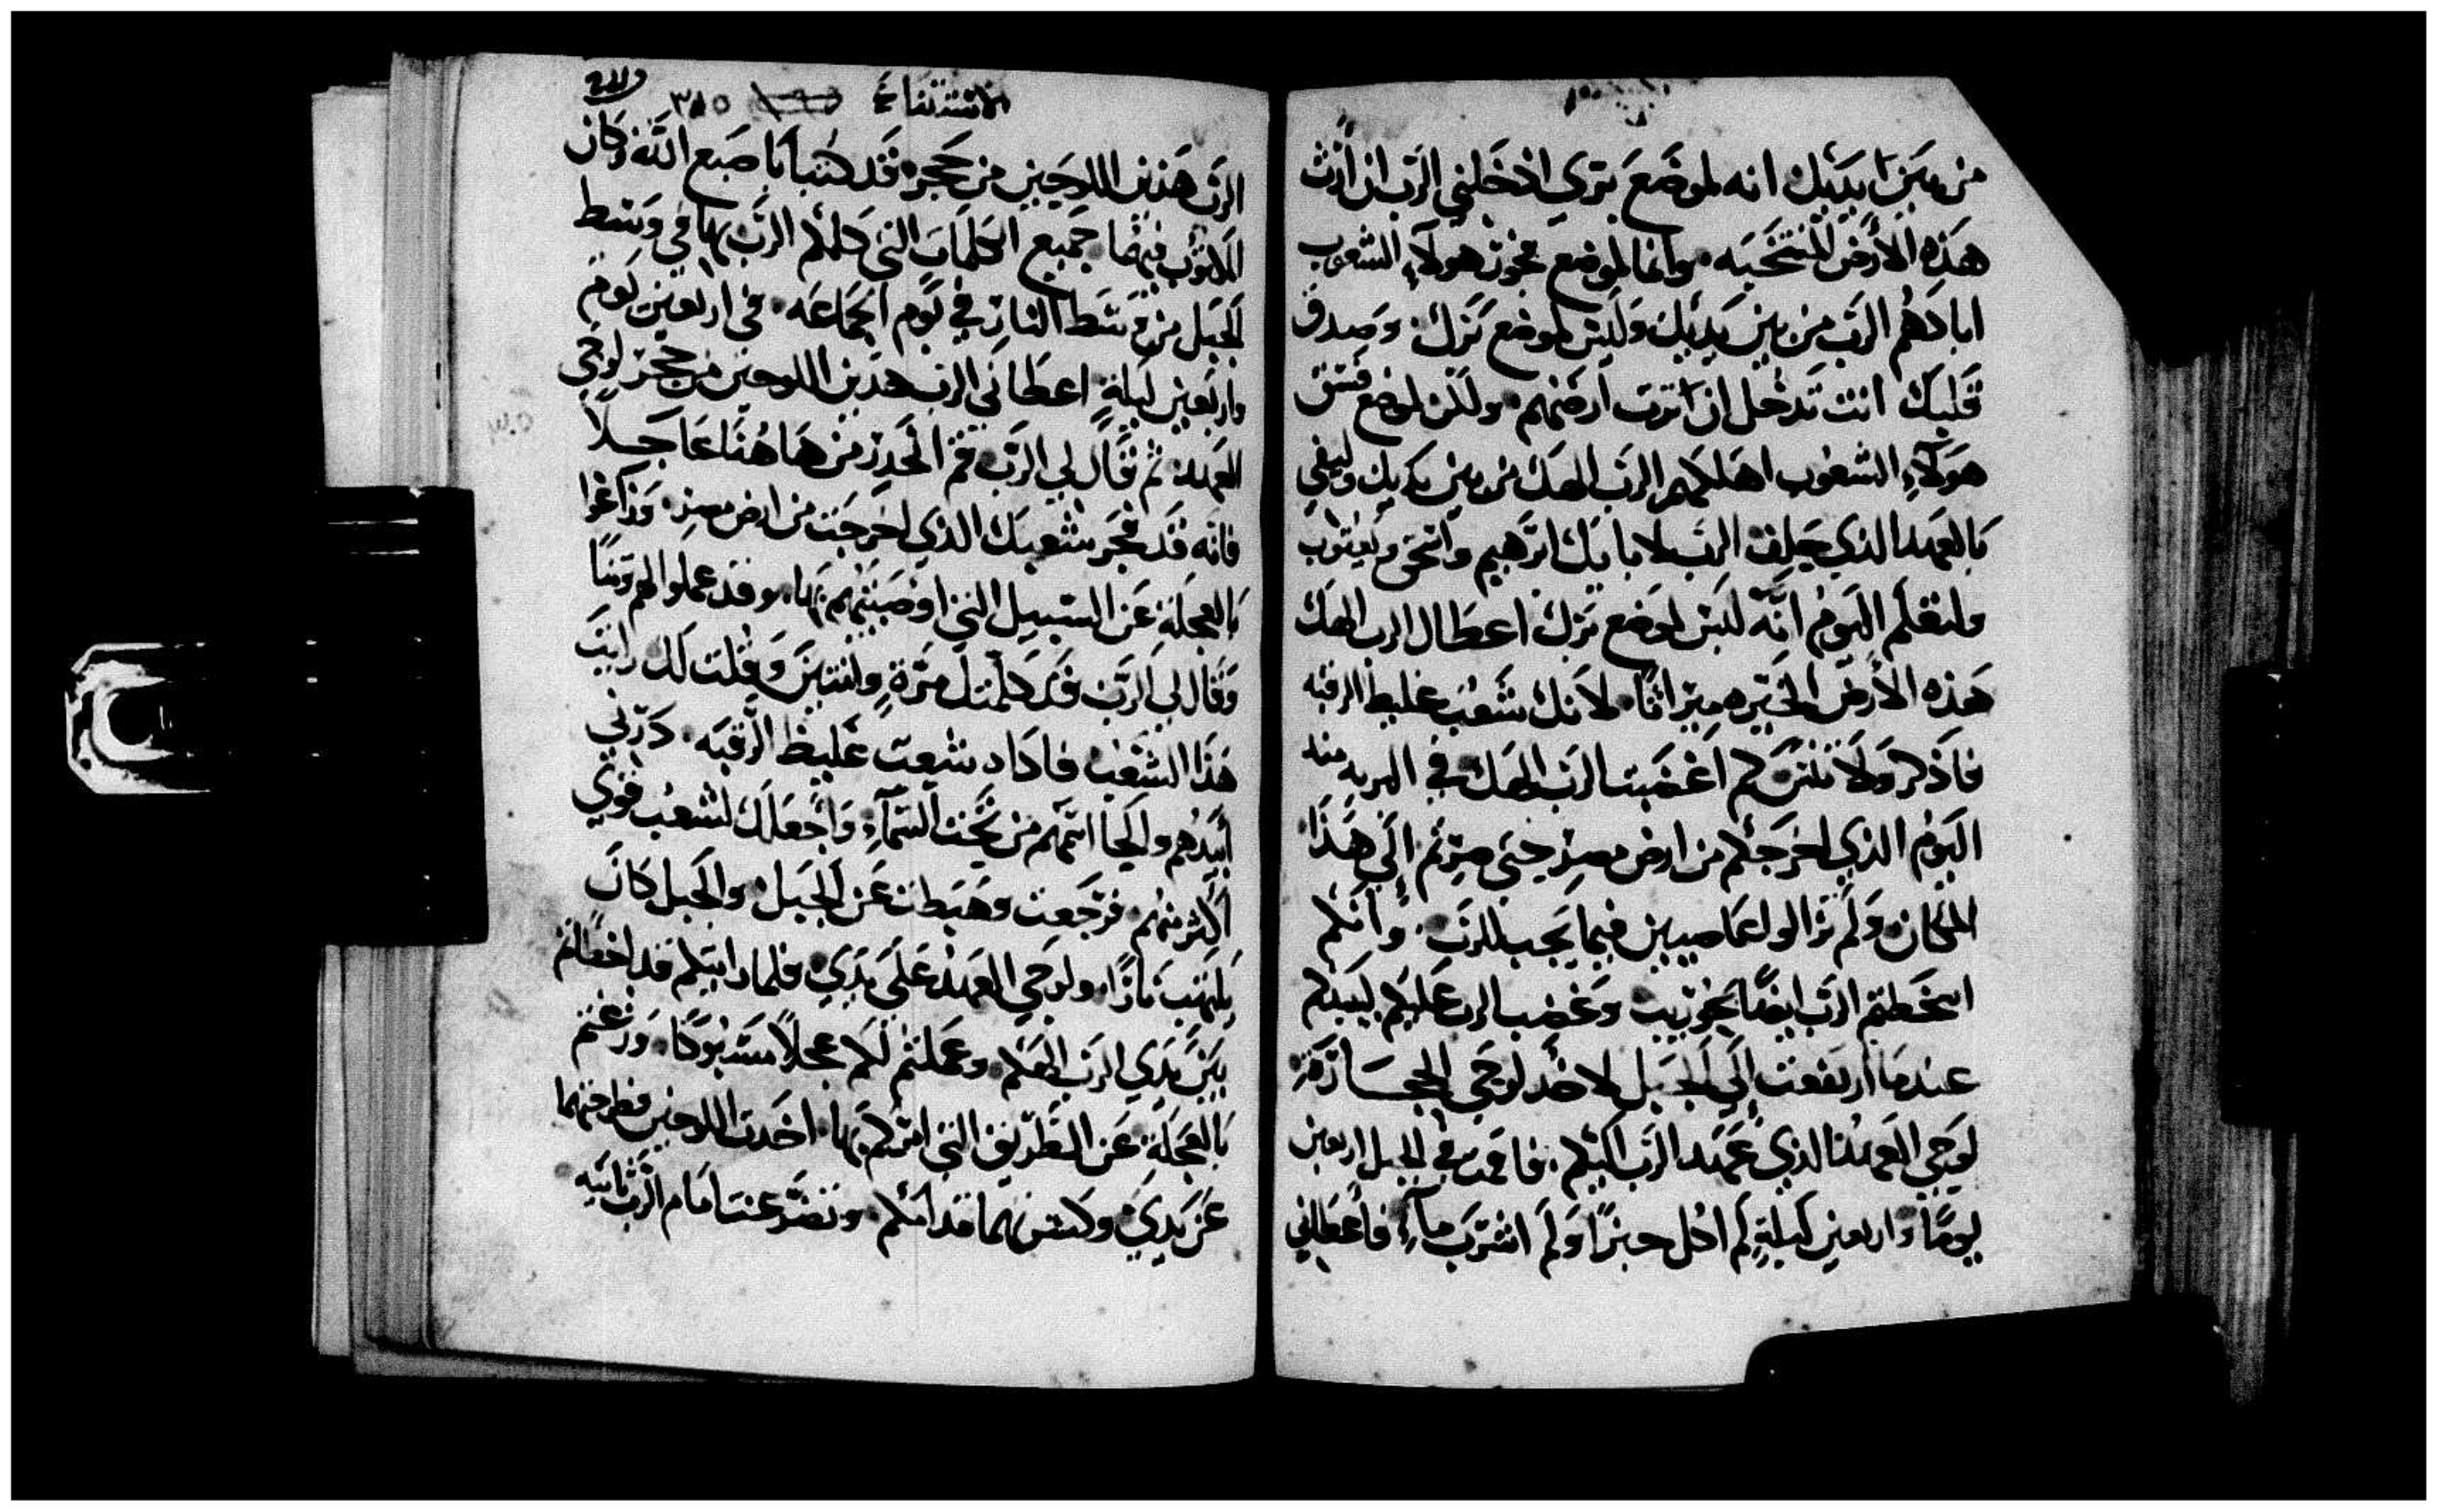 من بين يديك انه لموضع بري ادخلني الرب ان ارث
هذه الأرض المنتخبه وانما لموضع فجور هولاء الشعوب
ابادهم الرب من بين يديك وليس لموضع برك وصدق
قلبك انت تدخل ان ترث ارضهم ولكن لموضع فسق
هولاء الشعوب اهلكهم الرب الهك من بين يديك وليفي
بالعهد الذي حلف الرب لابايك ابرهيم واسحق ويعقوب
ولتعلم اليوم انه ليس لموضع برك اعطاك الرب الهك
هذه الأرض الخيره ميراثا لانك شعب غليظ الرقبه
فاذكر ولا تنس كم اغضبت الرب الهك في البريه منذ
اليوم الذي اخرجكم من ارض مصر حتى صرتم الى هذا
المكان ولم تزالوا عاصيين فيما يجب للرب وانكم
اسخطتم الرب ايضا بحوريب وغضب الرب عليكم ليبيدكم
عندما ارتفعت الى الجبل لاخد لوحي الحجارة
لوحي العهد الذي عهد الرب اليكم فاقمت في الجبل اربعين
يوما واربعين ليلة لم اكل خبزا ولم اشرب ماء فأعطاني
الاستثناء ٣١٥
الرب هذين اللوحين من حجر قد كتبا باصبع الله وكان
المكتوب فيهما جميع الكلمات التي كلمكم الرب بها في وسط
الجبل من وسط النار في يوم الجماعه في اربعين يوم
واربعين ليلة اعطاني الرب هذين اللوحين من حجر لوحي
العهد ثم قال لي الرب قم انحدر من هاهنا عاجلا
فانه قد فجر شعبك الذي اخرجت من ارض مصر وزاغوا
بالعجلة عن السبيل التي اوصيتهم بها وقد عملوا لهم وثنا
وقال لي الرب قد كلمتك مرة واثنتين وقلت لك رايت
هذا الشعب فاذا هو شعب غليظ الرقبه درني
ابيدهم والحا اسمهم من تحت السماء واجعلك لشعب قوي
اكثر منهم فرجعت وهبطت عن الجبل والجبل كان
يلتهب نارا ولوحي العهد على يدي فلما رايتكم قد اخطاتم
بين يدي الرب الهكم وعملتم لكم عجلا مسبوكا وزغتم
بالعجلة عن الطريق التي امرتكم بها اخدت اللوحين فطرحتهما
عن يدي وكسرتهما قدامكم وتضرعت امام الرب ثانيه